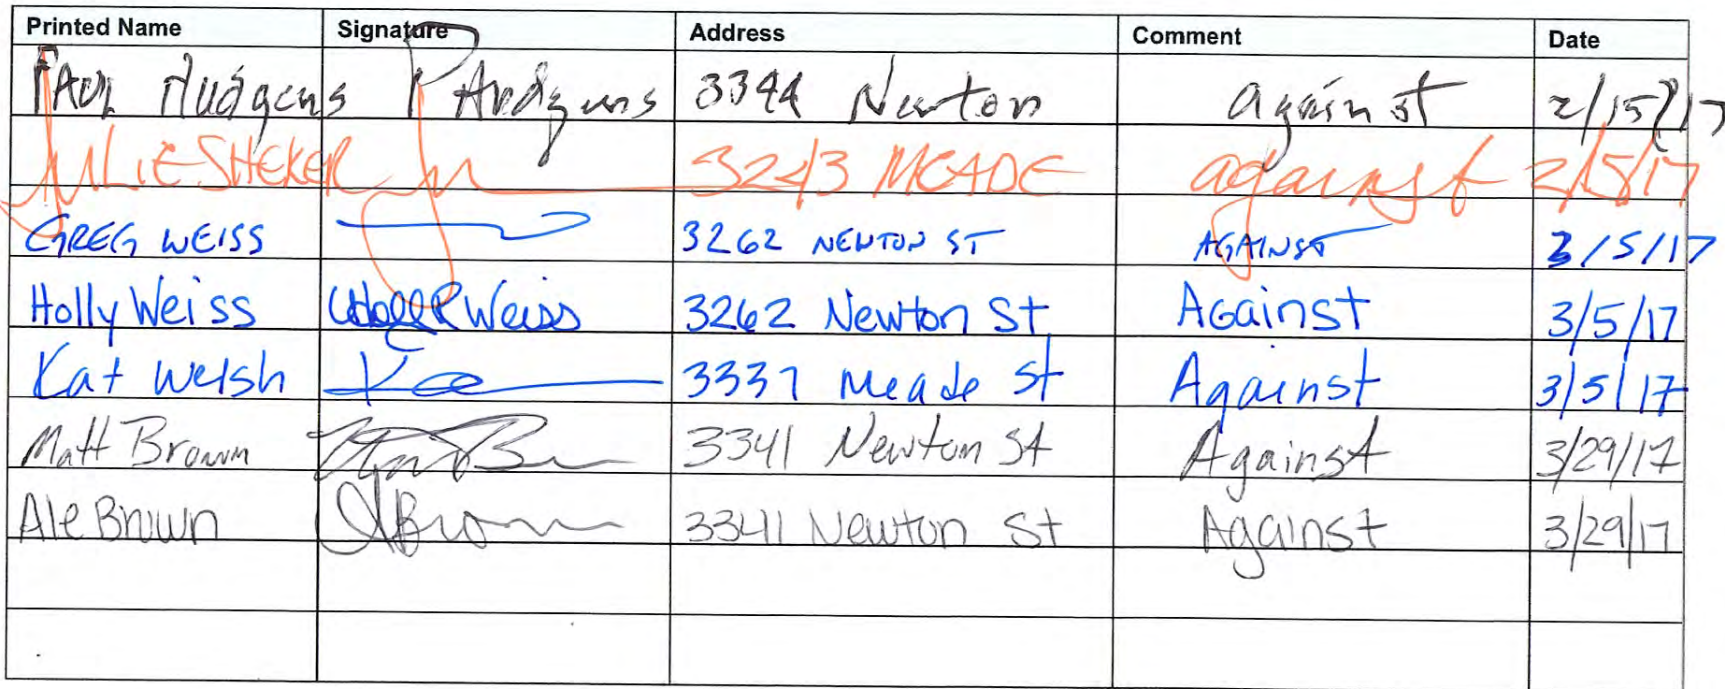 Printed Name Signature Address Comment Date
PAUL Hudgens P Hudgens 3344 Newton against 2/15/17
JULIE SHEKER 3243 MEADE against 2/15/17
GREG WEISS 3262 NEWTON ST AGAINST 3/5/17
Holly Weiss Holly R Weiss 3262 Newton St Against 3/5/17
Kat Welsh 3337 Meade St Against 3/5/17
Matt Brown 3341 Newton St Against 3/29/17
Ale Brown ABrown 3341 Newton St Against 3/29/17